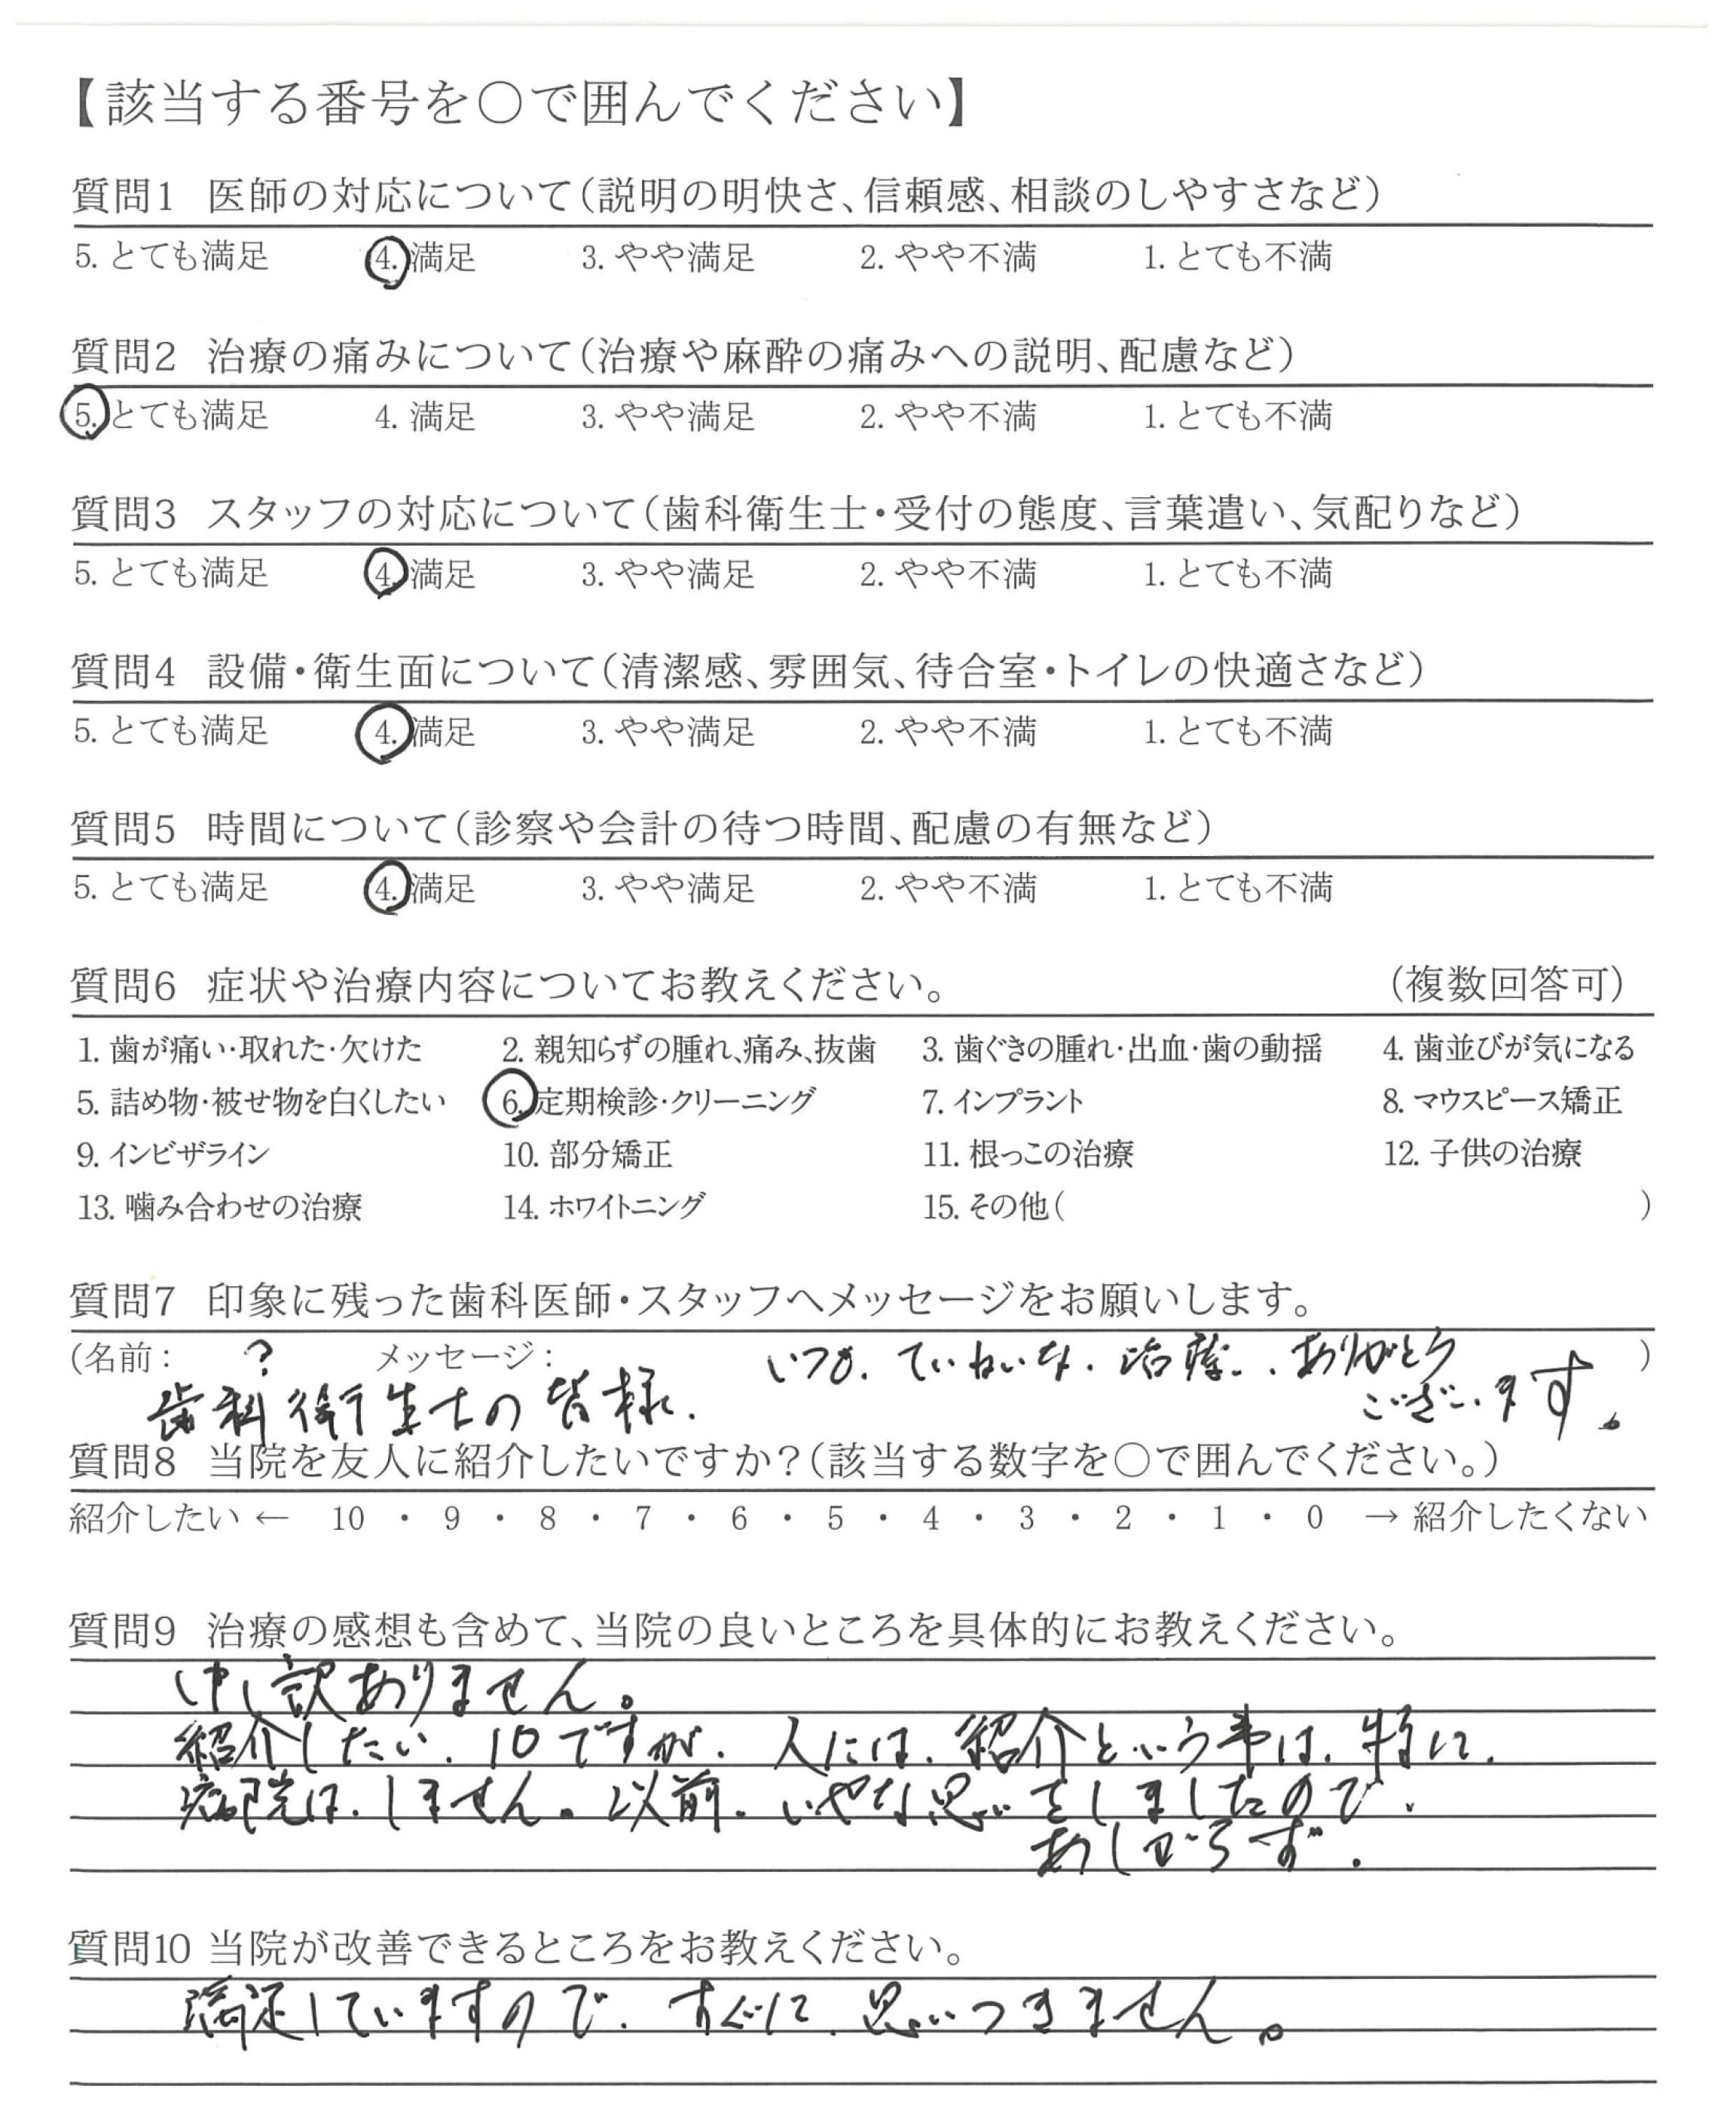 【該当する番号を○で囲んでください】
質問1 医師の対応について(説明の明快さ、信頼感、相談のしやすさなど)
5. とても満足 4. 満足 3. やや満足 2. やや不満 1. とても不満
質問2 治療の痛みについて(治療や麻酔の痛みへの説明、配慮など)
5. とても満足 4. 満足 3. やや満足 2. やや不満 1. とても不満
質問3 スタッフの対応について(歯科衛生士・受付の態度、言葉遣い、気配りなど)
5. とても満足 4. 満足 3. やや満足 2. やや不満 1. とても不満
質問4 設備・衛生面について(清潔感、雰囲気、待合室・トイレの快適さなど)
5. とても満足 4. 満足 3. やや満足 2. やや不満 1. とても不満
質問5 時間について(診察や会計の待つ時間、配慮の有無など)
5. とても満足 4. 満足 3. やや満足 2. やや不満 1. とても不満
質問6 症状や治療内容についてお教えください。 (複数回答可)
1. 歯が痛い・取れた・欠けた 2. 親知らずの腫れ、痛み、抜歯 3. 歯ぐきの腫れ・出血・歯の動揺 4. 歯並びが気になる
5. 詰め物・被せ物を白くしたい 6. 定期検診・クリーニング 7. インプラント 8. マウスピース矯正
9. インビザライン 10. 部分矯正 11. 根っこの治療 12. 子供の治療
13. 噛み合わせの治療 14. ホワイトニング 15. その他( )
質問7 印象に残った歯科医師・スタッフへメッセージをお願いします。
(名前: ? メッセージ: いつも.ていねいな.治療..ありがとう )
歯科衛生士の皆様. ございます。
質問8 当院を友人に紹介したいですか?(該当する数字を○で囲んでください。)
紹介したい ← 10 ・ 9 ・ 8 ・ 7 ・ 6 ・ 5 ・ 4 ・ 3 ・ 2 ・ 1 ・ 0 → 紹介したくない
質問9 治療の感想も含めて、当院の良いところを具体的にお教えください。
申し訳ありません。
紹介したい.10ですが.人には.紹介という事は.特に.
病院は.しません。以前.いやな思いをしましたので.
あしからず.
質問10 当院が改善できるところをお教えください。
満足していますので.すぐに.思いつきません。